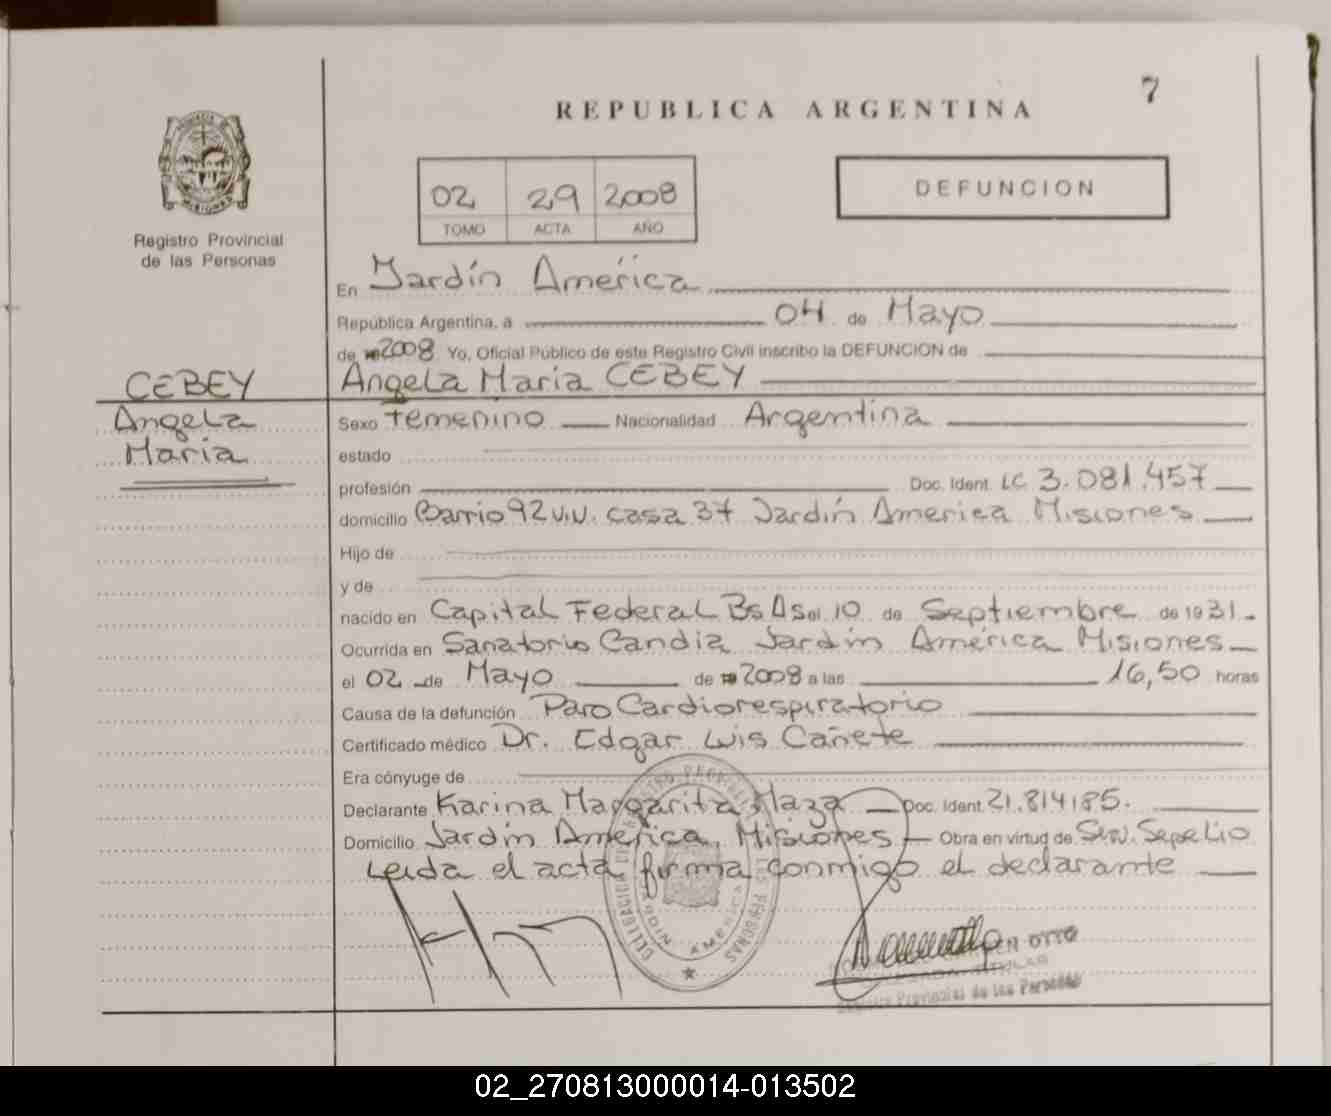 7
REPUBLICA ARGENTINA
02 29 2008
TOMO ACTA AÑO
DEFUNCION
MISIONES
Registro Provincial
de las Personas
En Jardín América
República Argentina, a 04 de Mayo
de 2008 Yo, Oficial Público de este Registro Civil inscribo la DEFUNCION de
Angela Maria CEBEY
CEBEY
Angela
Maria
Sexo femenino Nacionalidad Argentina
estado
profesión Doc. Ident. LC 3.081.457
domicilio Barrio 92 v.v. casa 37 Jardín America Misiones
Hijo de
y de
nacido en Capital Federal Bs As el 10 de Septiembre de 1931.
Ocurrida en Sanatorio Candia Jardín América Misiones
el 02 de Mayo de 2008 a las 16,50 horas
Causa de la defunción Paro Cardiorespiratorio
Certificado médico Dr. Edgar Luis Cañete
Era cónyuge de
Declarante Karina Margarita Maza Doc. Ident. 21.814185.
Domicilio Jardín América, Misiones Obra en virtud de Serv. Sepelio
Leida el acta firma conmigo el declarante
OTTO
Registro Provincial de las Personas
02_270813000014-013502